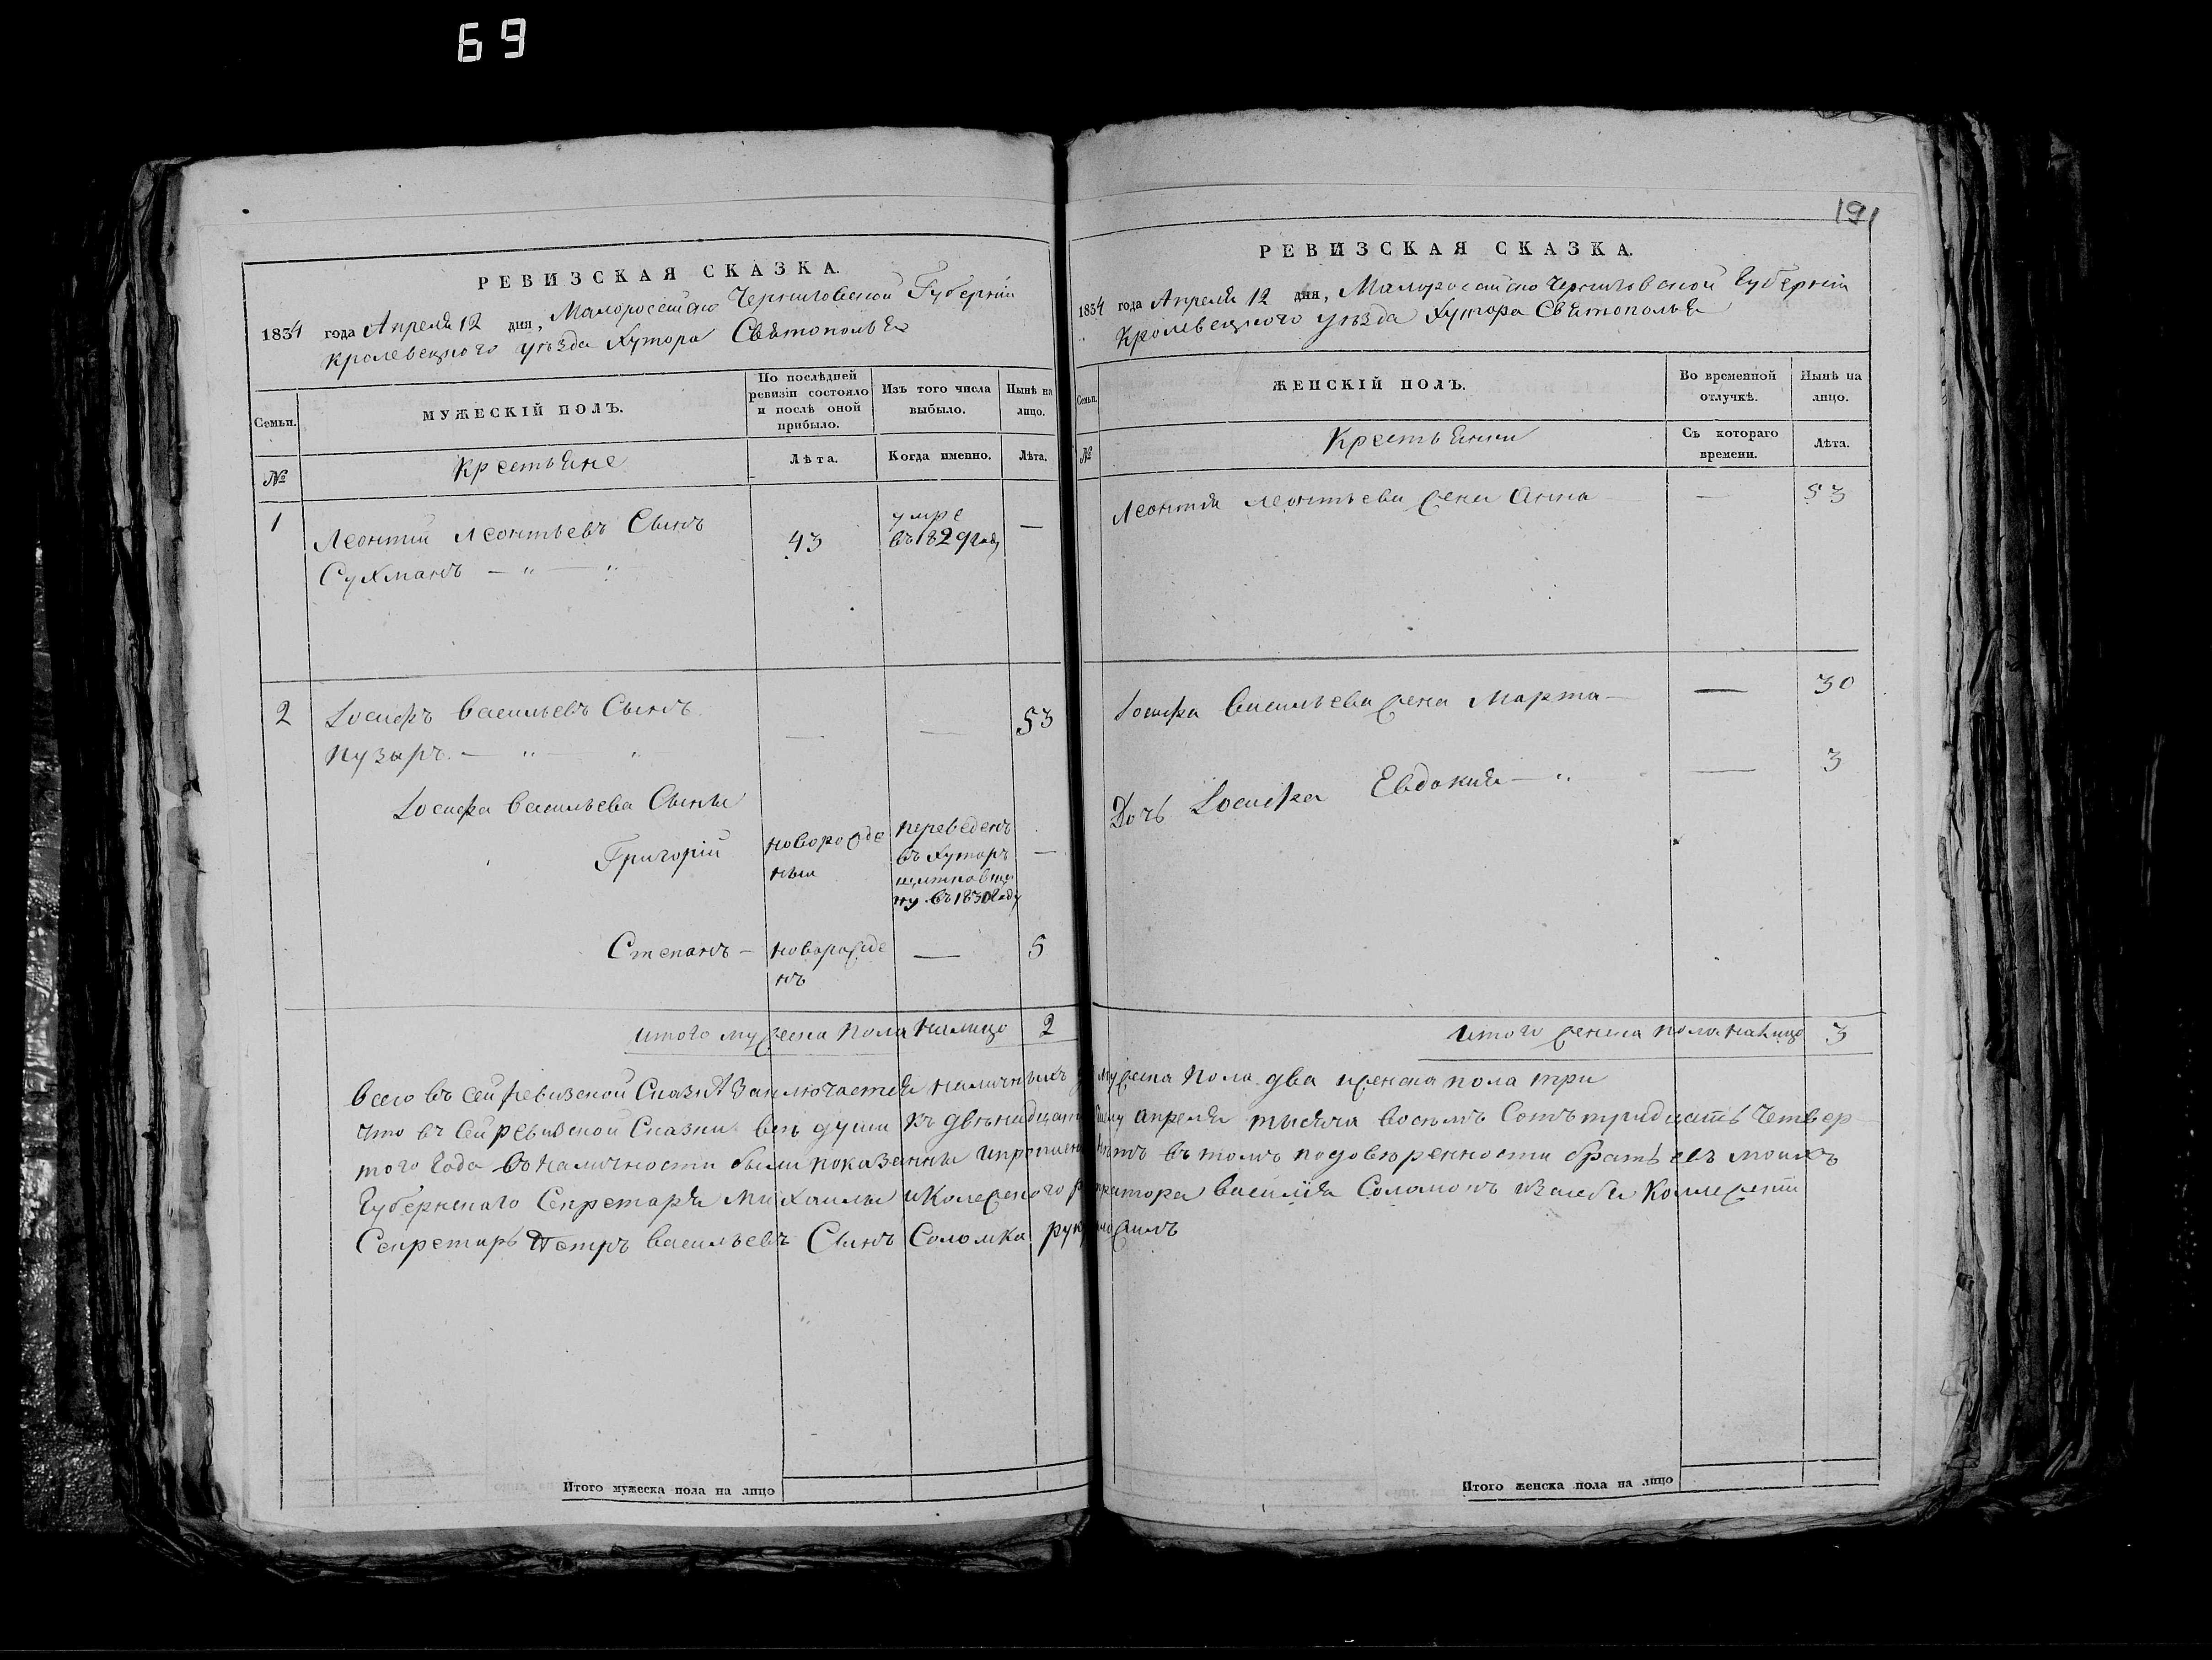 69
191
РЕВИЗСКАЯ СКАЗКА.
1834 года Апреля 12 дня, Малороссийско Черниговской Губернiи
Кролевецкого уѣзда Хутора Святополья
Семьи.
МУЖЕСКIЙ ПОЛЪ.
По послѣдней ревизiи состояло и послѣ оной прибыло.
Изъ того числа выбыло.
Нынѣ на лицо.
№
Крестьяне
Лѣта.
Когда именно.
Лѣта.
1
Леонтий Леонтьевъ Сынъ
Сухманъ — " — "
43
умре
въ 1829 году
—
2
Iосифъ Васильевъ Сынъ
Пузыръ. — " — "
—
—
53
Iосифа Васильева Сыны
Григорiй
новорожде
ный
переведенъ
въ Хуторъ
ну въ 1830 году
—
Степанъ —
новорожде
нъ
—
5
итого мужеска пола налицо 2
РЕВИЗСКАЯ СКАЗКА.
1834 года Апреля 12 дня, Малоросийско Черниговской Губернiи
Кролевецкого уѣзда Хутора Святополья
Семьи.
ЖЕНСКIЙ ПОЛЪ.
Во временной отлучкѣ.
Нынѣ на лицо.
№
Крестьянки
Съ котораго времени.
Лѣта.
Леонтия Леонтьева жена Анна — 53
Iосифа Васильева жена Марта — — 30
Дочь Iосифа Евдокия — " — 3
итого женска пола налицо 3
всего въ сей ревизской Сказкѣ Заключается наличныхъ мужеска пола два и женска пола три
что въ сей ревизской Сказки всѣ души къ двѣнадцатому апреля тысяча восемъ Сотъ тридцать Четвер
того года въ наличности были показанны и прописных нѣтъ въ томъ по довѣренности братьевъ моихъ
Губернскаго Секретаря Михаилы и Колежского регистратора Василия Соломокъ и За себя Коллежский
Секретарь Петръ Васильевъ Сынъ Соломка руку приложилъ
Итого мужеска пола на лицо
Итого женска пола на лицо